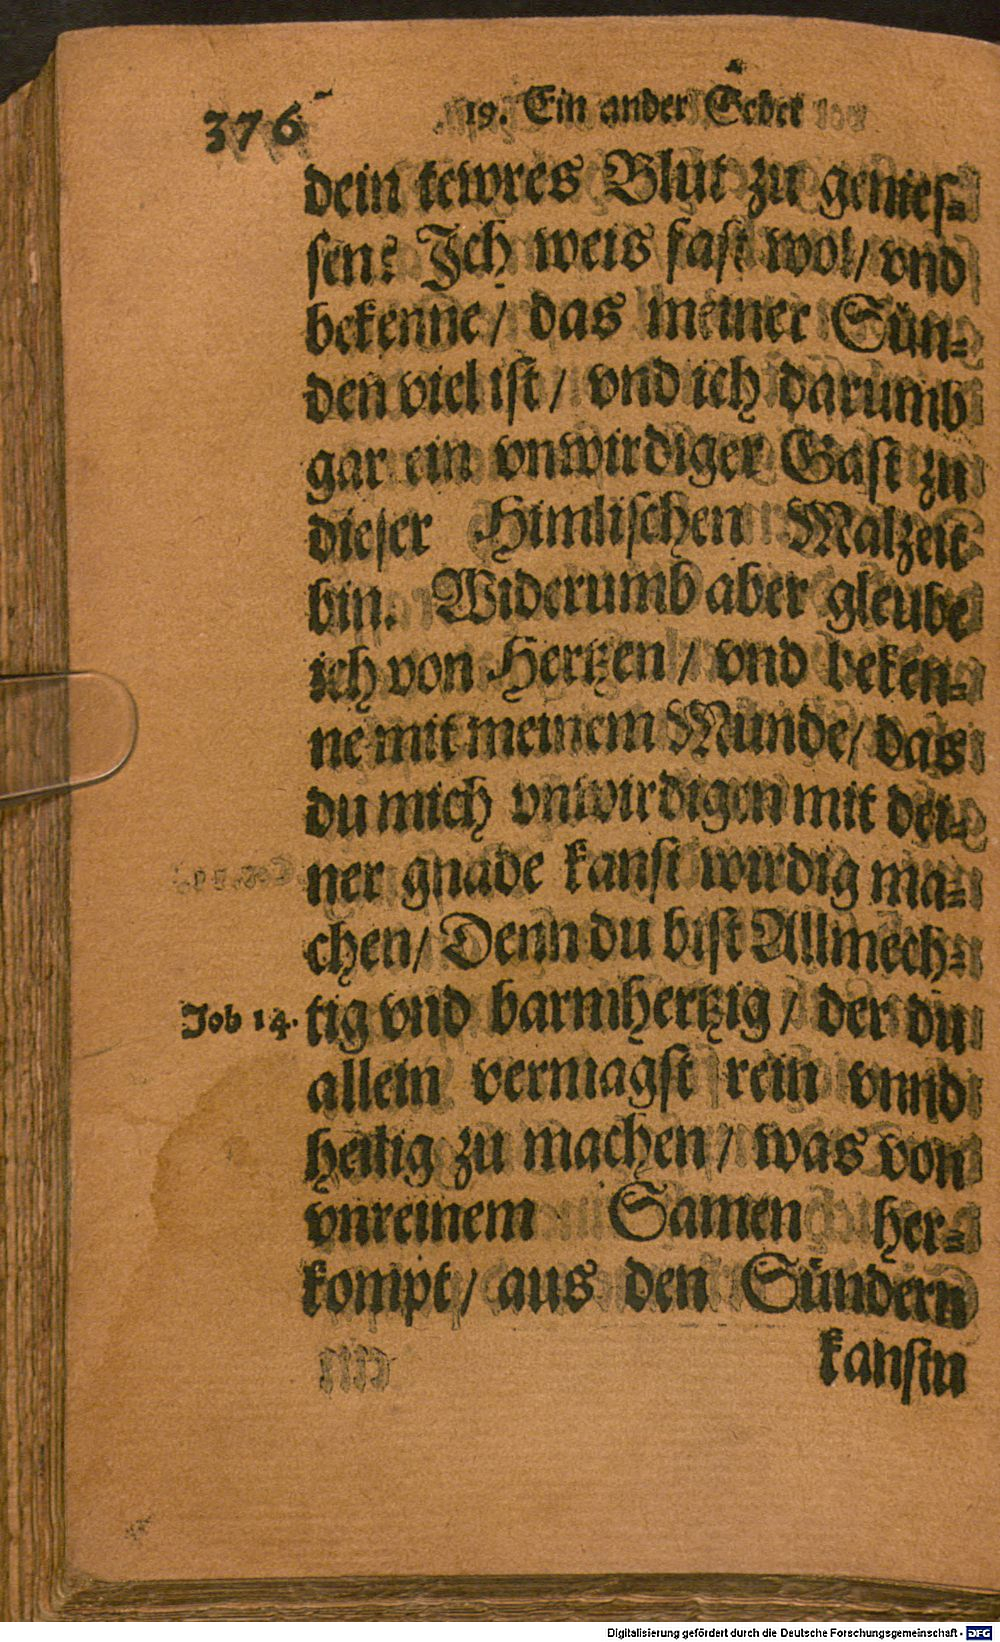 376 19. Ein ander Gebet
dein tewres Blut zu genies-
sen? Jch weis fast wol/ vnd
bekenne/ das meiner Sün-
den viel ist/ vnd ich darumb
gar ein vnwirdiger Gast zu
dieser Himlischen Malzeit
bin. Widerumb aber gleube
ich von Hertzen/ vnd beken-
ne mit meinem Munde/ das
du mich vnwirdigen mit dei-
ner gnade kanst wirdig ma-
chen/ Denn du bist Allmech-
Job 14. tig vnd barmhertzig/ der du
allein vermagst rein vnnd
heilig zu machen/ was von
vnreinem Samen her-
kompt/ aus den Sündern
kanstu
Digitalisierung gefördert durch die Deutsche Forschungsgemeinschaft - DFG